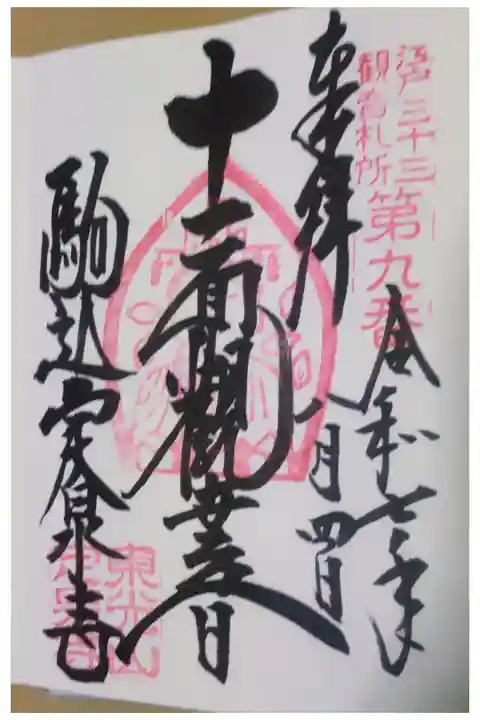 江戸三十三
観音札所
第九番
奉拝
令和七年
八月四日
十一面観世音
駒込定泉寺
東光山
定泉寺